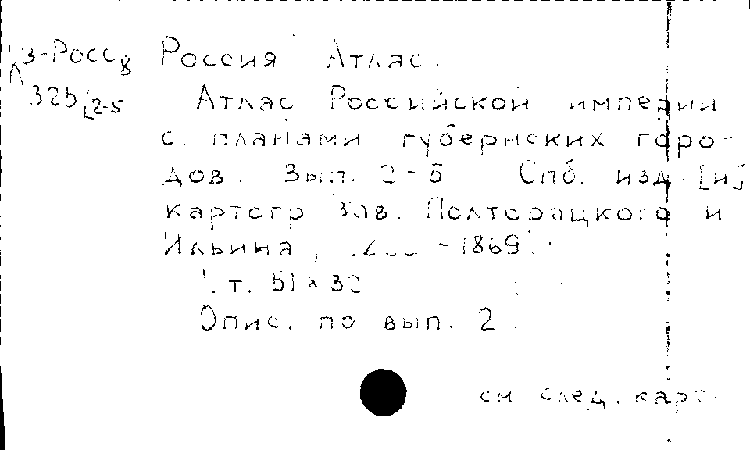 3-Росс 8 Россия Атлас.
32б 2-5 Атлас Российской империи
с планами губернских горо-
дов. Вып. 2-5 Спб. изд. [и]
картогр зав. Полторацкого и
Ильина, -1869.
т. 51×32
Опис. по вып. 2.
см след. карт.